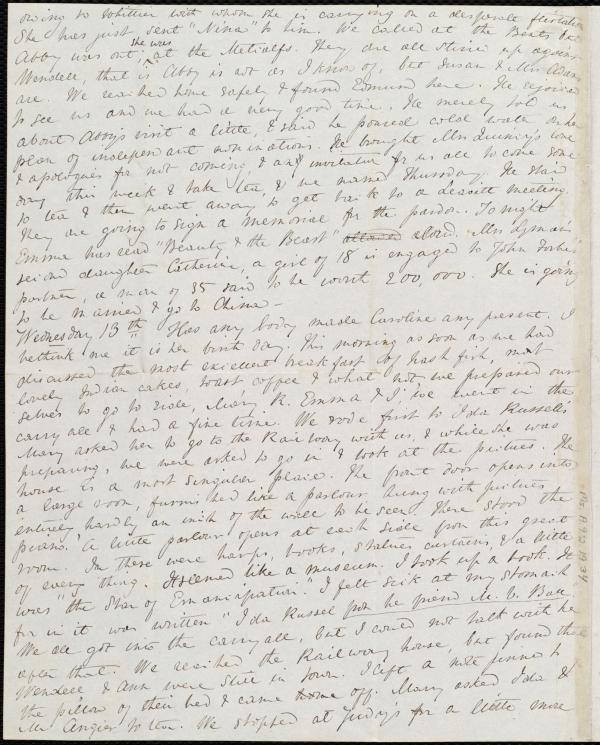 owing to Whittier with whom she is carrying on a desperate flirtation
She has just sent "Nina" to him. We called at the Bents but
Abby was out, she was at the Metcalfs. They are all stirred up against
Wendell, that is Abby is not as I know of, but Susan & Mrs Adam
are. We reached home safely & found Edmund here. He rejoiced
to see us and we had a very good time. He merely told us
about Abby's visit a little, & said he poured cold water on her
plan of independent nominations. He brought Mrs Quincy's love
& apologues for not coming, & an invitation for us all to come some
day this week & take tea, & we named Thursday. He staid
to tea & then went away to get back to a dessitt meeting.
They are going to sign a memorial for the pardon. Tonight
Emma has read "Beauty & the Beast" aloud. Mrs Lyman's
second daughter Catherine, a girl of 18 is engaged to John Forbes'
partner, a man of 35 said to be worth 200,000. She is going
to be married & go to China —
Wednesday 13th Has any body made Caroline any present. I
bethink me it is her birth day. This morning as soon as we had
discussed the most excellent breakfast of hash fish, most
lovely Indian cakes, toast coffee & what not, we prepared our
selves to go to ride, Mary R. Emma & I; we went in the
carry all & had a fine time. We rode first to Ida Russell's
Mary asked her to go to the Rail way with us, & while she was
preparing, we were asked to go in & look at the pictures. The
house is a most singular place. The front door opens into
a large room, furnished like a parlour, hung with pictures
entirely, hardly an inch of the wall to be seen. There stood the
piano. A little parlour opens at each side from this great
room. In these were harps, books, statues, curtains, & a little
of every thing. It seemed like a museum. I took up a book. It
was "the Star of Emancipation." I felt sick at my stomach
for in it was written "Ida Russel from her friend M. V. Ball
We all got into the carryall, but I could not talk with her
after that. We reached the Railway house, but found that
Wendell & Ann were still in town. I left a note pinned to
the pillow of their bed & came off. Mary asked Ida &
Mr Angier to tea. We stopped at Judy's for a little more
Ms. A.9.2.19.34